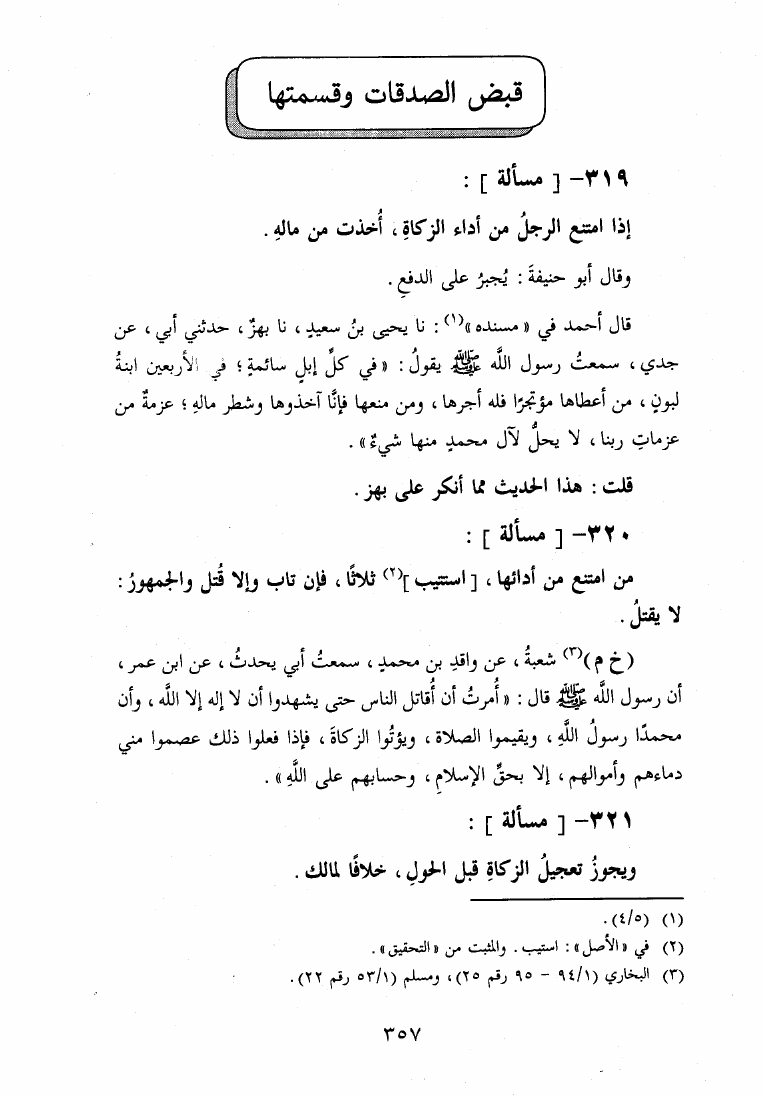 قبض الصدقات وقسمتها
٣١٩- [ مسألة ] :
إذا امتنع الرجلُ من أداء الزكاةِ ، أُخذت من مالهِ .
وقال أبو حنيفةَ : يُجبرُ على الدفعِ .
قال أحمد في « مسنده »(١) : نا يحيى بنُ سعيدٍ ، نا بهزٌ ، حدثني أبي ، عن
جدي ، سمعتُ رسول اللَّه ﷺ يقولُ : « في كلِّ إبلٍ سائمةٍ ؛ في الأربعين ابنةُ
لبونٍ ، من أعطاها مؤتجرًا فله أجرها ، ومن منعها فإنَّا آخذوها وشطر مالهِ ؛ عزمةٌ من
عزماتِ ربنا ، لا يحلُّ لآل محمدٍ منها شيءٌ » .
قلت : هذا الحديث مما أنكر على بهز .
٣٢٠- [ مسألة ] :
من امتنع من أدائها ، [ استتيب ](٢) ثلاثًا ، فإن تاب وإلا قُتل والجمهورُ :
لا يقتلُ .
(خ م)(٣) شعبةُ ، عن واقدِ بن محمدٍ ، سمعتُ أبي يحدثُ ، عن ابن عمر ،
أن رسول اللَّه ﷺ قال : « أُمرتُ أن أُقاتل الناس حتى يشهدوا أن لا إله إلا اللَّه ، وأن
محمدًا رسولُ اللَّهِ ، ويقيموا الصلاة ، ويؤتُوا الزكاةَ ، فإذا فعلوا ذلك عصموا مني
دماءهم وأموالهم ، إلا بحقِّ الإسلامِ ، وحسابهم على اللَّهِ » .
٣٢١- [ مسألة ] :
ويجوزُ تعجيلُ الزكاةِ قبل الحولِ ، خلافًا لمالك .
(١) (٤/٥) .
(٢) في « الأصل » : استيب . والمثبت من « التحقيق » .
(٣) البخاري (٩٤/١ - ٩٥ رقم ٢٥) ، ومسلم (٥٣/١ رقم ٢٢) .
٣٥٧